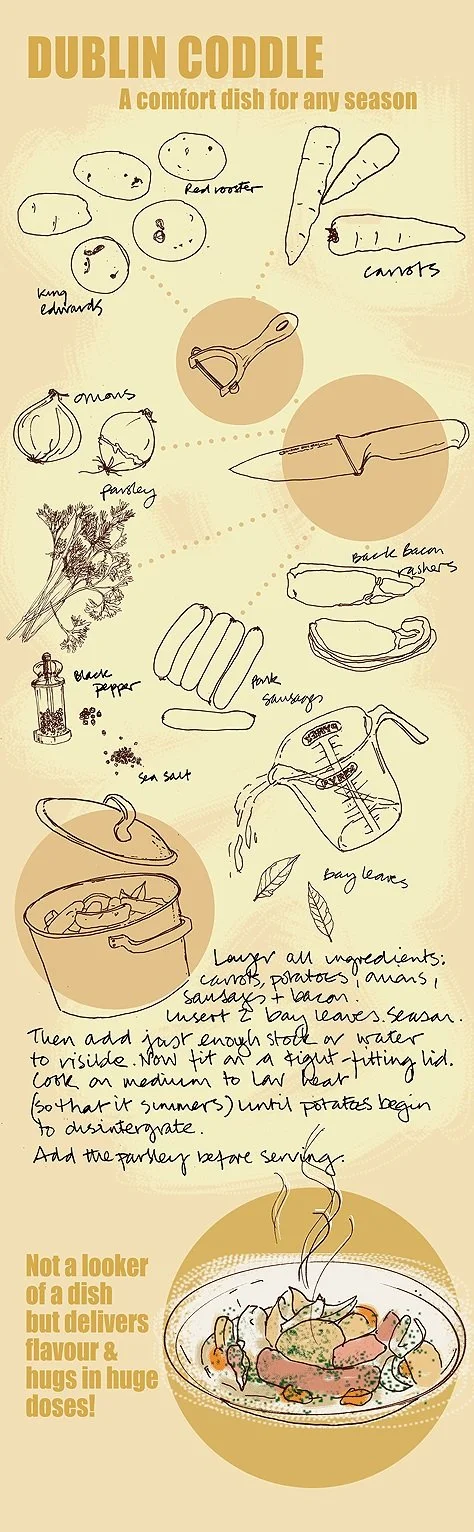 DUBLIN CODDLE
A comfort dish for any season
Red rooster
King
edwards
carrots
onions
parsley
Back Bacon
rashers
Black
pepper
Pork
sausages
sea salt
bay leaves
Layer all ingredients:
carrots, potatoes, onions,
sausages + bacon.
Insert 2 bay leaves. Season.
Then add just enough stock or water
to visible. Now fit on a tight-fitting lid.
Cook on medium to low heat
(so that it simmers) until potatoes begin
to disintergrate.
Add the parsley before serving.
Not a looker
of a dish
but delivers
flavour &
hugs in huge
doses!